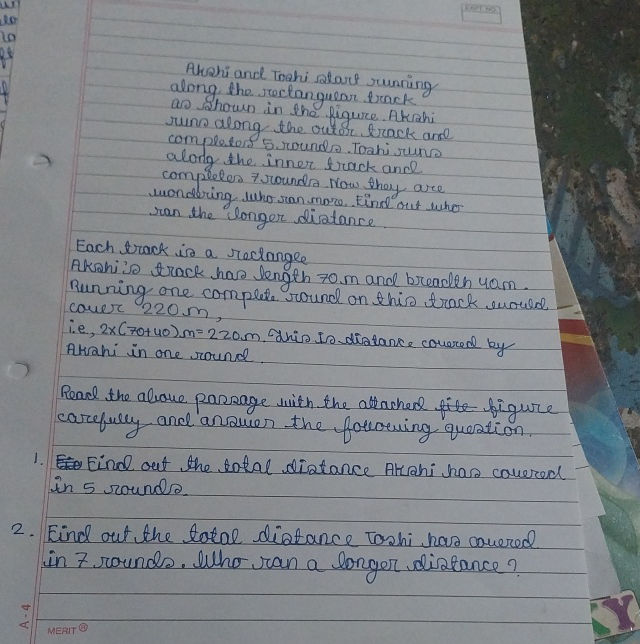 EXPT. NO.
Akshi and Toshi start running
along the rectangular track
as shown in the figure. Akshi
runs along the outer track and
completes 5 rounds. Toshi runs
along the inner track and
completes 7 rounds. Now they are
wondering who ran more. Find out who
ran the longer distance.
Each track is a rectangle
Akshi's track has length 70 m and breadth 40m.
Running one complete round on this track would
cover 220 m,
i.e, 2x(70+40) m=220m. This is distance covered by
Akshi in one round.
Read the above passage with the attached figure
carefully and answer the following question.
1. Find out the total distance Akshi has covered
in 5 rounds.
2. Find out the total distance Toshi has covered
in 7 rounds. Who ran a longer distance?
A-4
MERIT®